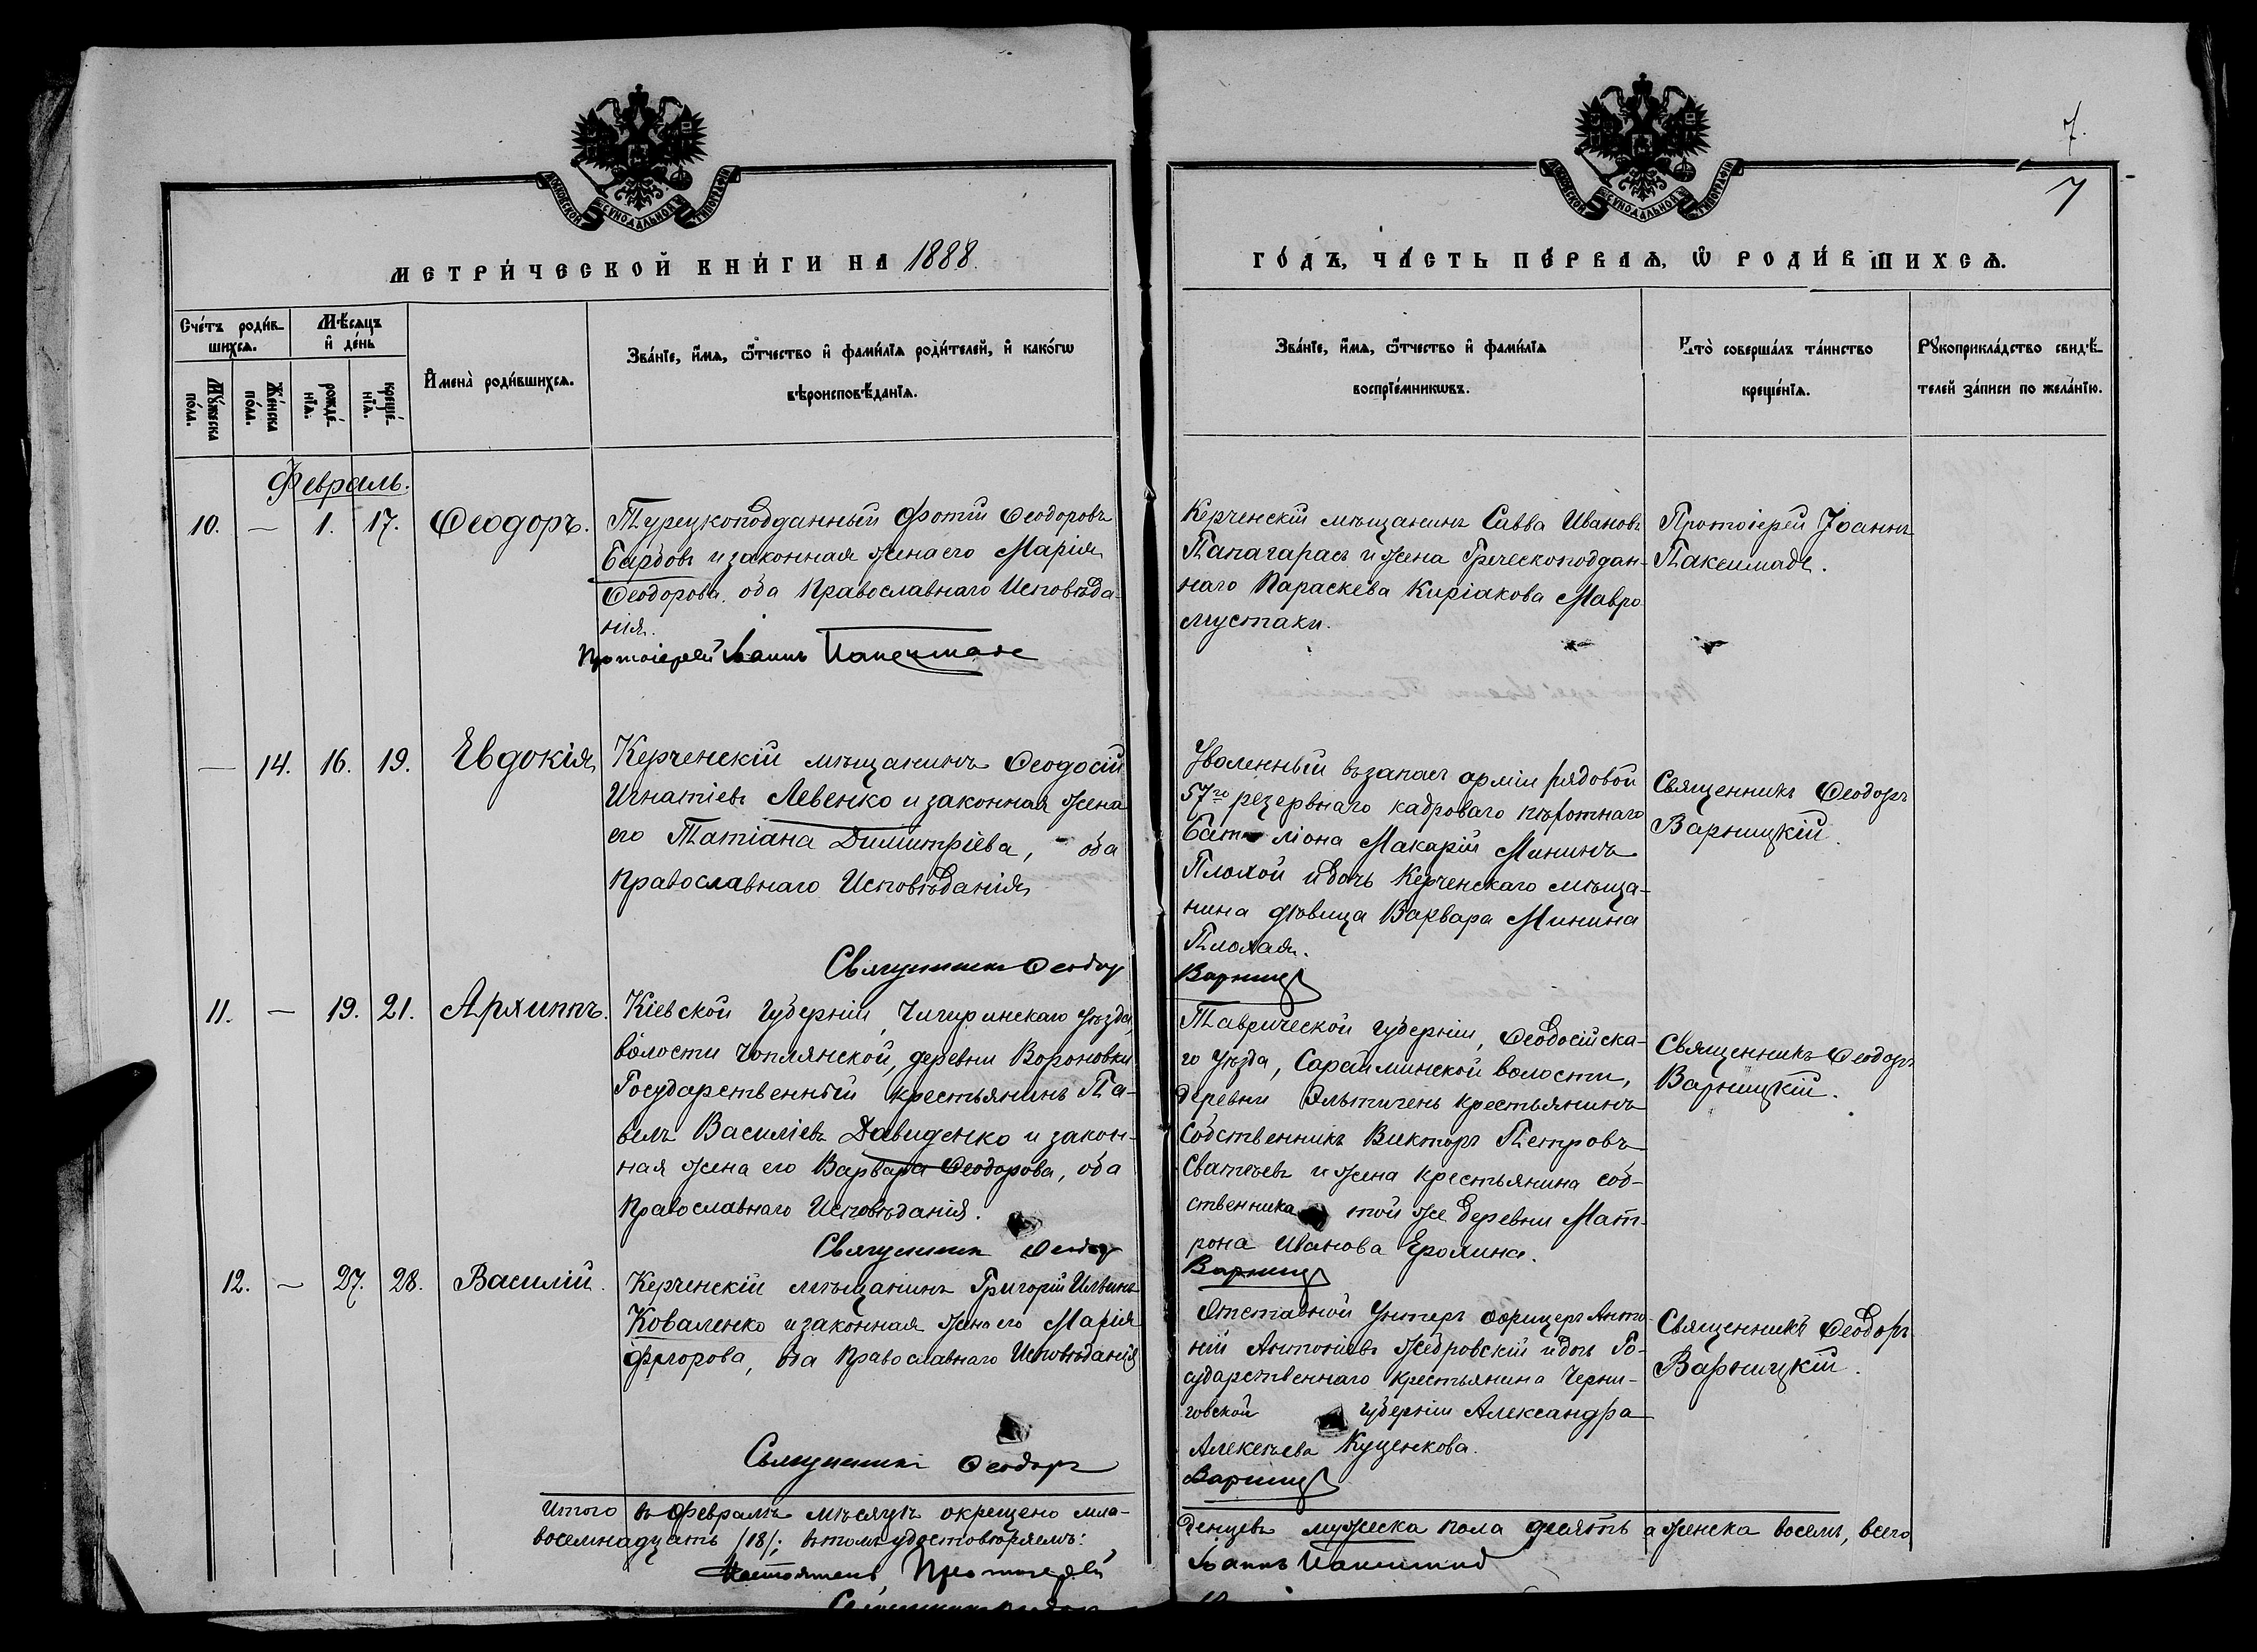 7.
7
МОСКОВСКОЙ СѴНОДАЛЬНОЙ ТИПОГРАФІИ
МОСКОВСКОЙ СѴНОДАЛЬНОЙ ТИПОГРАФІИ
МЕТРИ́ЧЕСКОЙ КНИ́ГИ НА 1888.
ГО́ДЪ, ЧА́СТЬ ПЕ́РВАѦ, Ѡ҆ РОДИ́ВШИХСѦ.
Сче́тъ роди́в-
шихсѧ.
Мѣ́сѧцъ
и҆ де́нь
Мꙋ́жеска
по́ла.
Же́нска
по́ла.
рожде́-
нїѧ.
креще́-
нїѧ.
И҆мена̀ роди́вшихсѧ.
Зва́нїе, и҆́мѧ, ѻ҆́тчество и҆ фами́лїѧ роди́телей, и҆ како́гѡ
вѣроисповѣ́данїѧ.
Зва́нїе, и҆́мѧ, ѻ҆́тчество и҆ фами́лїѧ
воспрїе́мникѡвъ.
Кто̀ соверша́лъ та́инство
креще́нїѧ.
Рꙋкоприкла́дство свидѣ́-
телей за́писи по жела́нїю.
Февраль.
10. — 1. 17. Ѳеодоръ.
Турецкоподданный Фотій Ѳеодоровъ
Барбовъ и законная жена его Марія
Ѳеодорова, оба Православнаго Исповѣда-
нія.
Протоіерей Іоаннъ Паксимаде
Керченскій мѣщанинъ Савва Ивановъ
Папагарасъ и жена Греческоподдан-
наго Параскева Киріакова Мавро-
мустаки.
Протоіерей Іоаннъ
Паксимаде.
— 14. 16. 19. Евдокія
Керченскій мѣщанинъ Ѳеодосій
Игнатіевъ Левенко и законная жена
его Татіана Димитріева, оба
Православнаго Исповѣданія
Священникъ Ѳеодоръ
Уволенный въ запасъ арміи рядовой
57го резервнаго кадроваго пѣхотнаго
баталіона Макарій Мининъ
Плохой и дочь Керченскаго мѣща-
нина дѣвица Варвара Минина
Плохая.
Варниц
Священникъ Ѳеодоръ
Варницкій.
11. — 19. 21. Архиппъ.
Кіевской губерніи, Чигиринскаго уѣзда,
волости Чаплянской, деревни Вороновки
Государственный крестьянинъ Па-
велъ Василіевъ Давиденко и закон-
ная жена его Варвара Ѳеодорова, оба
Православнаго Исповѣданія.
Священникъ Ѳеодоръ
Таврической губерніи, Ѳеодосійска-
го уѣзда, Сарайминской волости,
деревни Эльтигень крестьянинъ
собственникъ Викторъ Петровъ
Сватѣевъ и жена крестьянина соб-
ственника той же деревни Мат-
рона Иванова Ерохина.
Варниц
Священникъ Ѳеодоръ
Варницкій.
12. — 27. 28. Василій.
Керченскій мѣщанинъ Григорій Ильинъ
Коваленко и законная жена его Марія
Ѳедорова, оба Православнаго Исповѣданія
Священникъ Ѳеодоръ
Отставной Унтеръ Офицеръ Анто-
ній Антоніевъ Жебровскій и дочь Го-
сударственнаго крестьянина Черни-
говской губерніи Александра
Алексѣева Куценкова.
Варниц
Священникъ Ѳеодоръ
Варницкій.
Итого въ Февралѣ мѣсяцѣ окрещено мла-
денцевъ мужеска пола десять а женска восемь, всего
восемнадцать /18/; въ томъ удостовѣряемъ:
Настоятель Протоіерей
Іоаннъ Паксимад